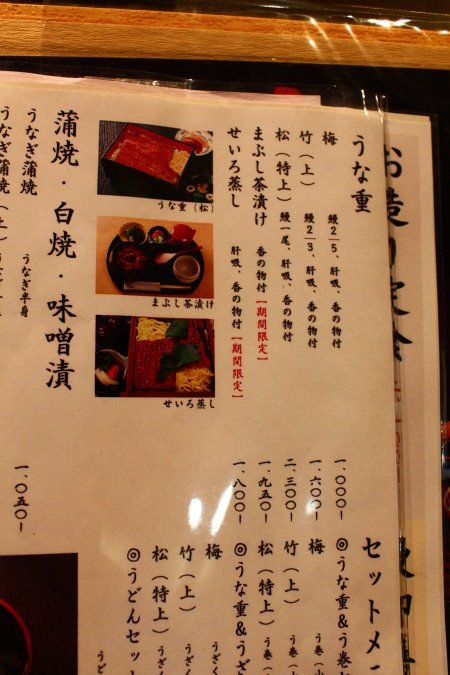 うな重
梅 鰻2/5、肝吸、香の物付 一、〇〇〇ー
竹（上） 鰻2/3、肝吸、香の物付 一、六〇〇ー
松（特上） 鰻一尾、肝吸、香の物付 二、三〇〇ー
まぶし茶漬け 香の物付【期間限定】 一、九五〇ー
せいろ蒸し 肝吸、香の物付【期間限定】 一、八〇〇ー
うな重（松）
まぶし茶漬け
せいろ蒸し
蒲焼・白焼・味噌漬
うなぎ蒲焼 うなぎ半身 一、〇五〇ー
うなぎ蒲焼（上）
セットメ
◎うな重＆う巻
梅 う巻（小
竹（上） う巻
松（特上） う巻
◎うな重＆うざ
梅 うざく
竹（上） うざく
松（特上） うざく
◎うどんセッ
うど
お造り定食